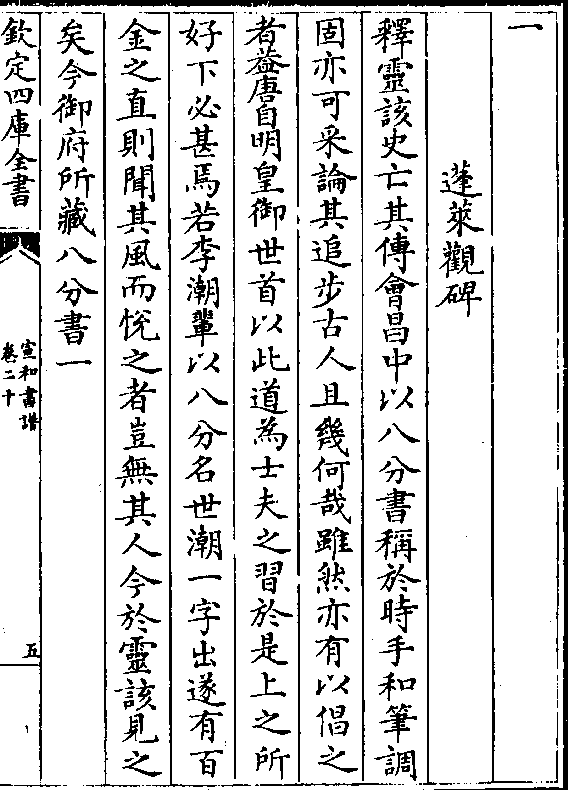 一
蓬萊觀碑
釋靈該史亡其傳會昌中以八分書稱於時手和筆調
固亦可采論其追步古人且幾何哉雖然亦有以倡之
者葢唐自明皇御世首以此道為士夫之習於是上之所
好下必甚焉若李潮輩以八分名世潮一字出遂有百
金之直則聞其風而悅之者豈無其人今於靈該見之
矣今御府所藏八分書一
欽定四庫全書
宣和書譜
卷二十
五